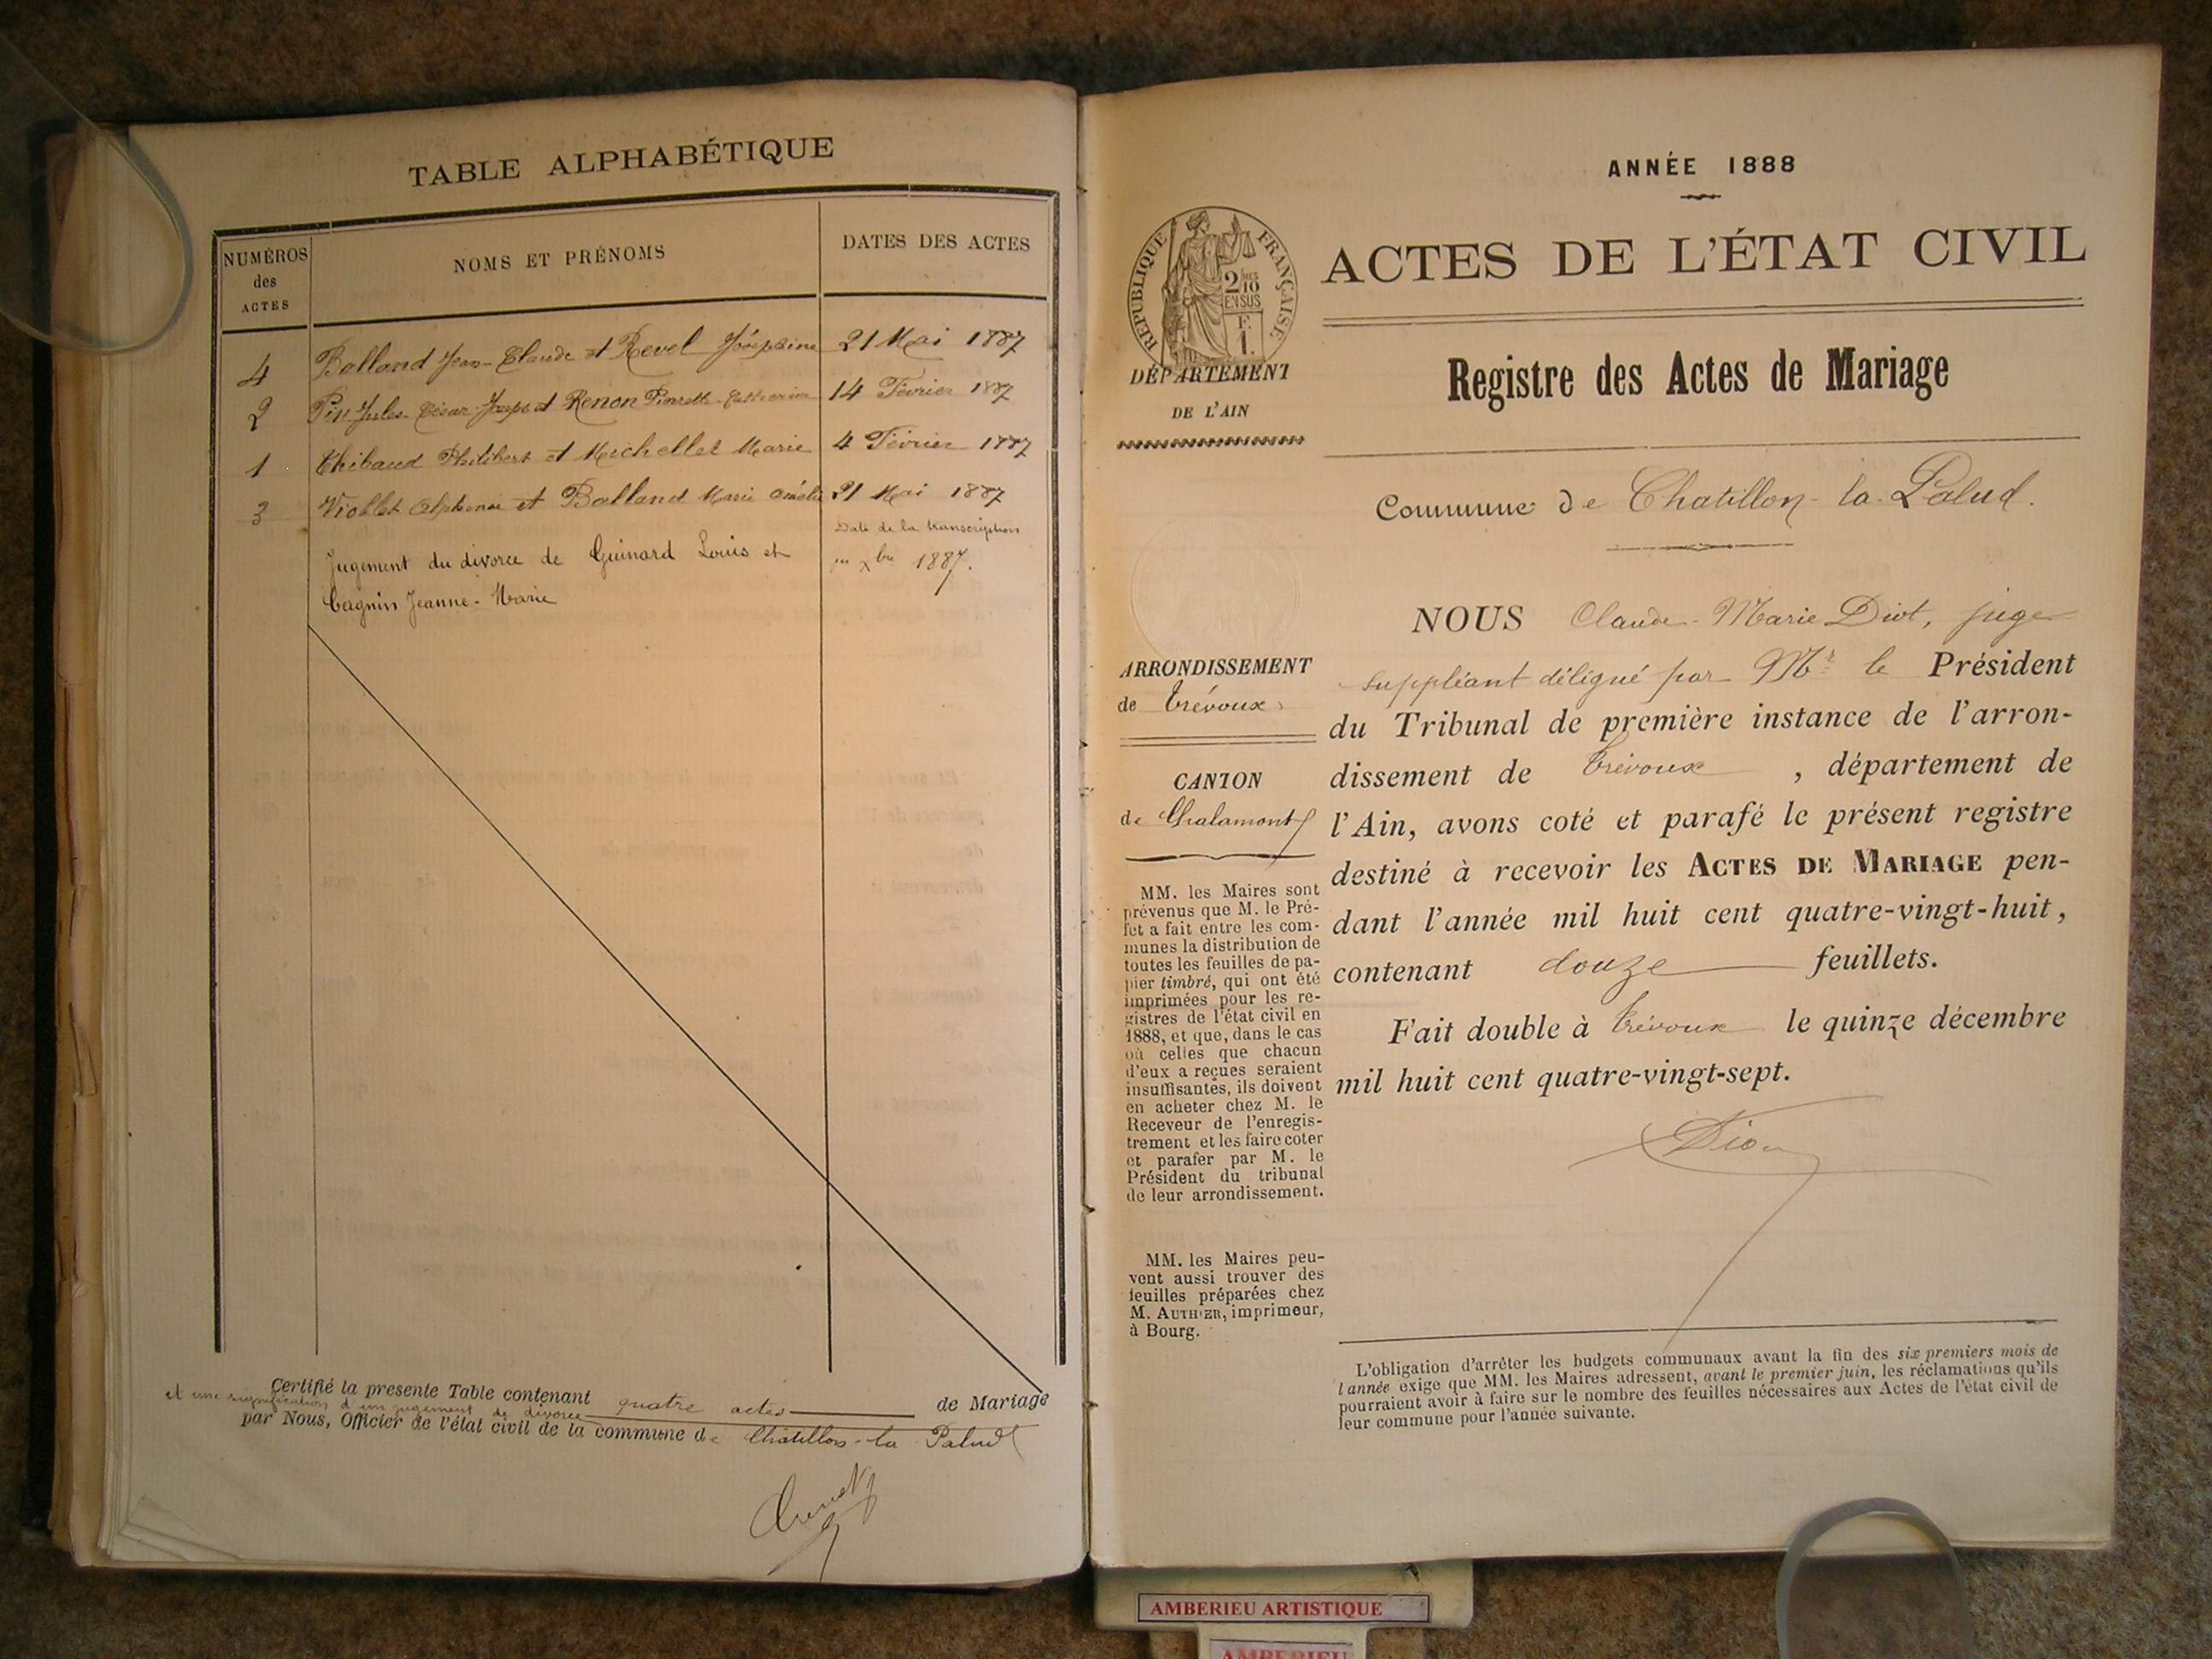 TABLE ALPHABÉTIQUE
NUMÉROS
des
ACTES
NOMS ET PRÉNOMS
DATES DES ACTES
4 Balland Jean-Claude et Revel Joséphine 21 Mai 1887
2 Pin Jules-César-Joseph et Renon Pierrette-Catherine 14 Février 1887
1 Thibaud Philibert et Michellet Marie 4 Février 1887
3 Viollet Alphonse et Balland Marie Amélie 21 Mai 1887
Date de la transcription
Jugement du divorce de Guinard Louis et xbre 1887.
Cagnin Jeanne-Marie
Certifié la presente Table contenant quatre actes de Mariage
et une signification d'un jugement de divorce
par Nous, Officier de l'état civil de la commune de Chatillon-la Palud
ANNÉE 1888
RÉPUBLIQUE FRANÇAISE
2/10 EN SUS
F.
1.
ACTES DE L'ÉTAT CIVIL
DÉPARTEMENT
DE L'AIN
Registre des Actes de Mariage
Commune de Chatillon-la-Palud.
ARRONDISSEMENT
de Trévoux
CANTON
de Chalamont
MM. les Maires sont
prévenus que M. le Pré-
fet a fait entre les com-
munes la distribution de
toutes les feuilles de pa-
pier timbré, qui ont été
imprimées pour les re-
gistres de l'état civil en
1888, et que, dans le cas
où celles que chacun
d'eux a reçues seraient
insuffisantes, ils doivent
en acheter chez M. le
Receveur de l'enregis-
trement et les faire coter
et parafer par M. le
Président du tribunal
de leur arrondissement.
MM. les Maires peu-
vent aussi trouver des
feuilles préparées chez
M. AUTHIER, imprimeur,
à Bourg.
NOUS Claude-Marie Diot, juge
suppléant délégué par Mr le Président
du Tribunal de première instance de l'arron-
dissement de Trévoux , département de
l'Ain, avons coté et parafé le présent registre
destiné à recevoir les ACTES DE MARIAGE pen-
dant l'année mil huit cent quatre-vingt-huit,
contenant douze feuillets.
Fait double à Trévoux le quinze décembre
mil huit cent quatre-vingt-sept.
L'obligation d'arrêter les budgets communaux avant la fin des six premiers mois de
l'année exige que MM. les Maires adressent, avant le premier juin, les réclamations qu'ils
pourraient avoir à faire sur le nombre des feuilles nécessaires aux Actes de l'état civil de
leur commune pour l'année suivante.
AMBERIEU ARTISTIQUE
AMBERIEU